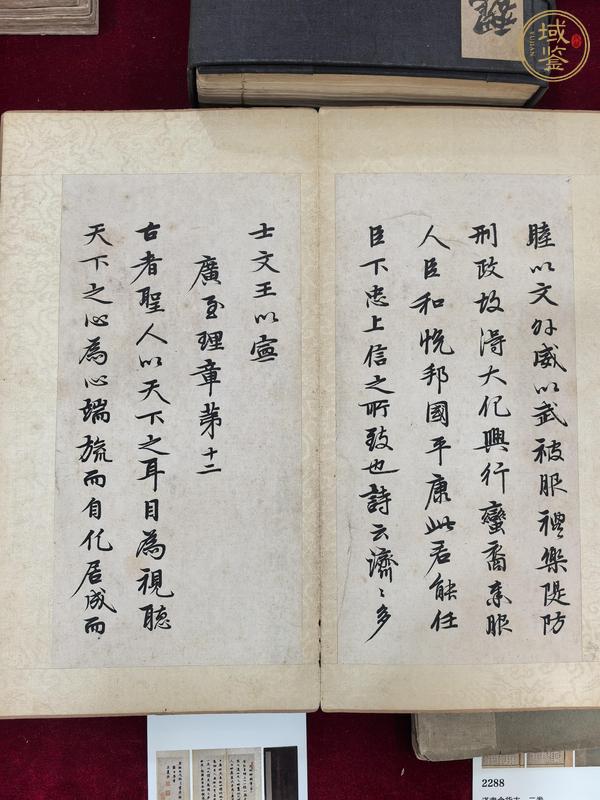 睦以文外威以武被服禮樂隄防
刑政故得大化興行蠻裔率服
人臣和悅邦國平康此君能任
臣下忠上信之所致也詩云濟〻多
士文王以寧
廣至理章第十二
古者聖人以天下之耳目為視聽
天下之心為心端旒而自化居成而
域鉴
YUJIAN
2288